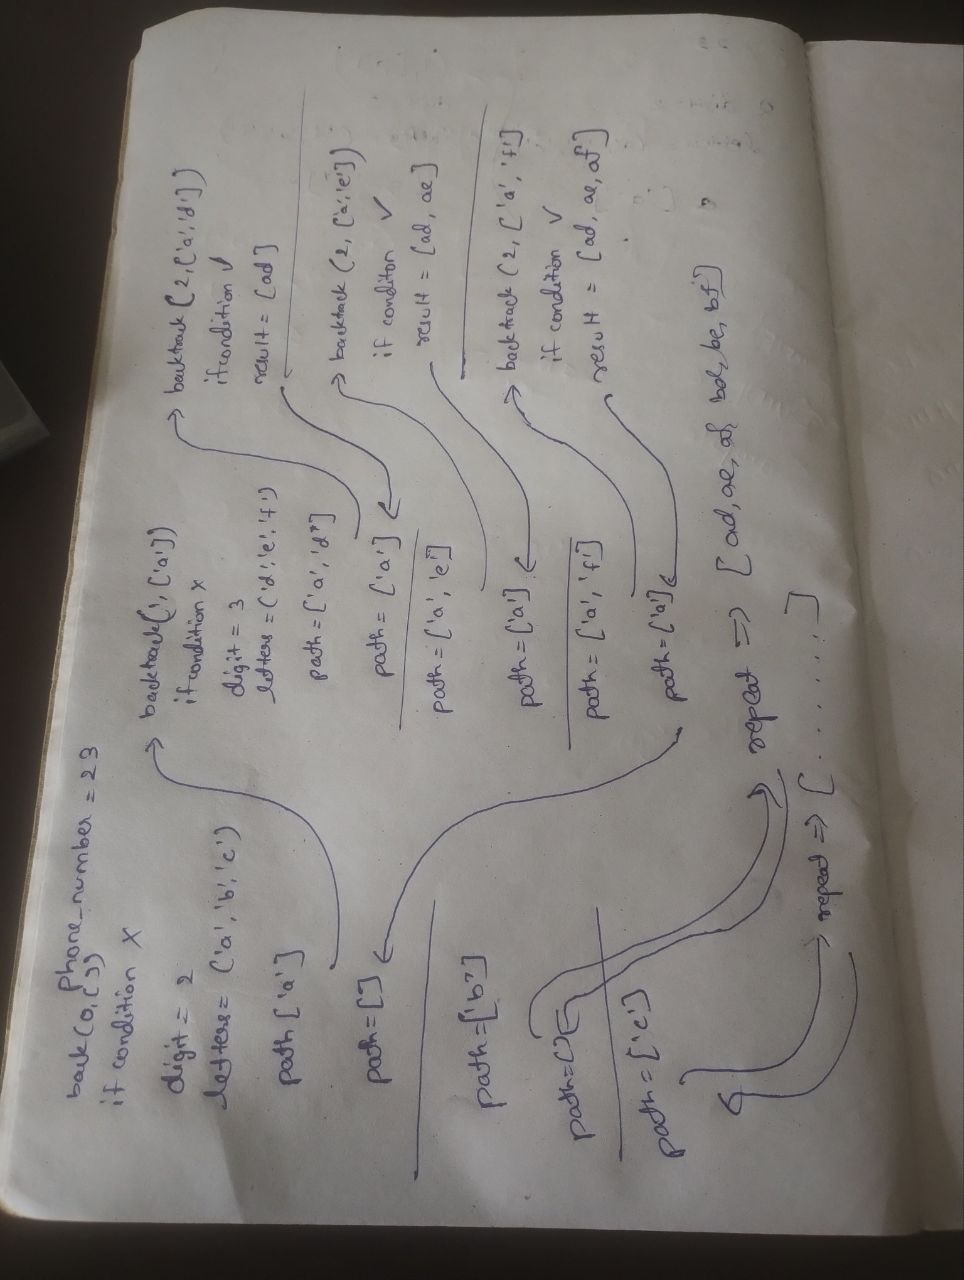 phone_number = 23
back(0,[])
if condition X
digit = 2
letters = ('a','b','c')
path ['a']
path = []
path = ['b']
path = []
path = ['c']
backtrack(1,['a'])
if condition x
digit = 3
letters = ('d','e','f')
path = ['a','d']
path = ['a']
path = ['a','e']
path = ['a']
path = ['a','f']
path = ['a']
backtrack (2,['a','d'])
if condition ✓
result = [ad]
backtrack (2, ['a','e'])
if conditon ✓
result = [ad, ae]
backtrack (2, ['a','f']
if condition ✓
result = [ad, ae, af]
repeat => [ad, ae, af, bd, be, bf]
repeat => [ . . . . . . . ]